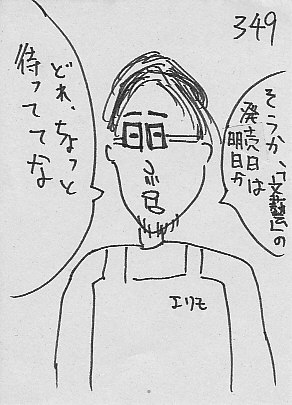 349
そうか、「文藝」の
発売日は
明日か
どれ、ちょっと
待っててな
エリモ